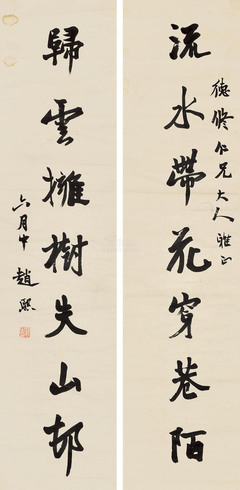 流水帶花穿巷陌
德修仁兄大人雅正
歸雲擁樹失山邨
六月中
趙熙